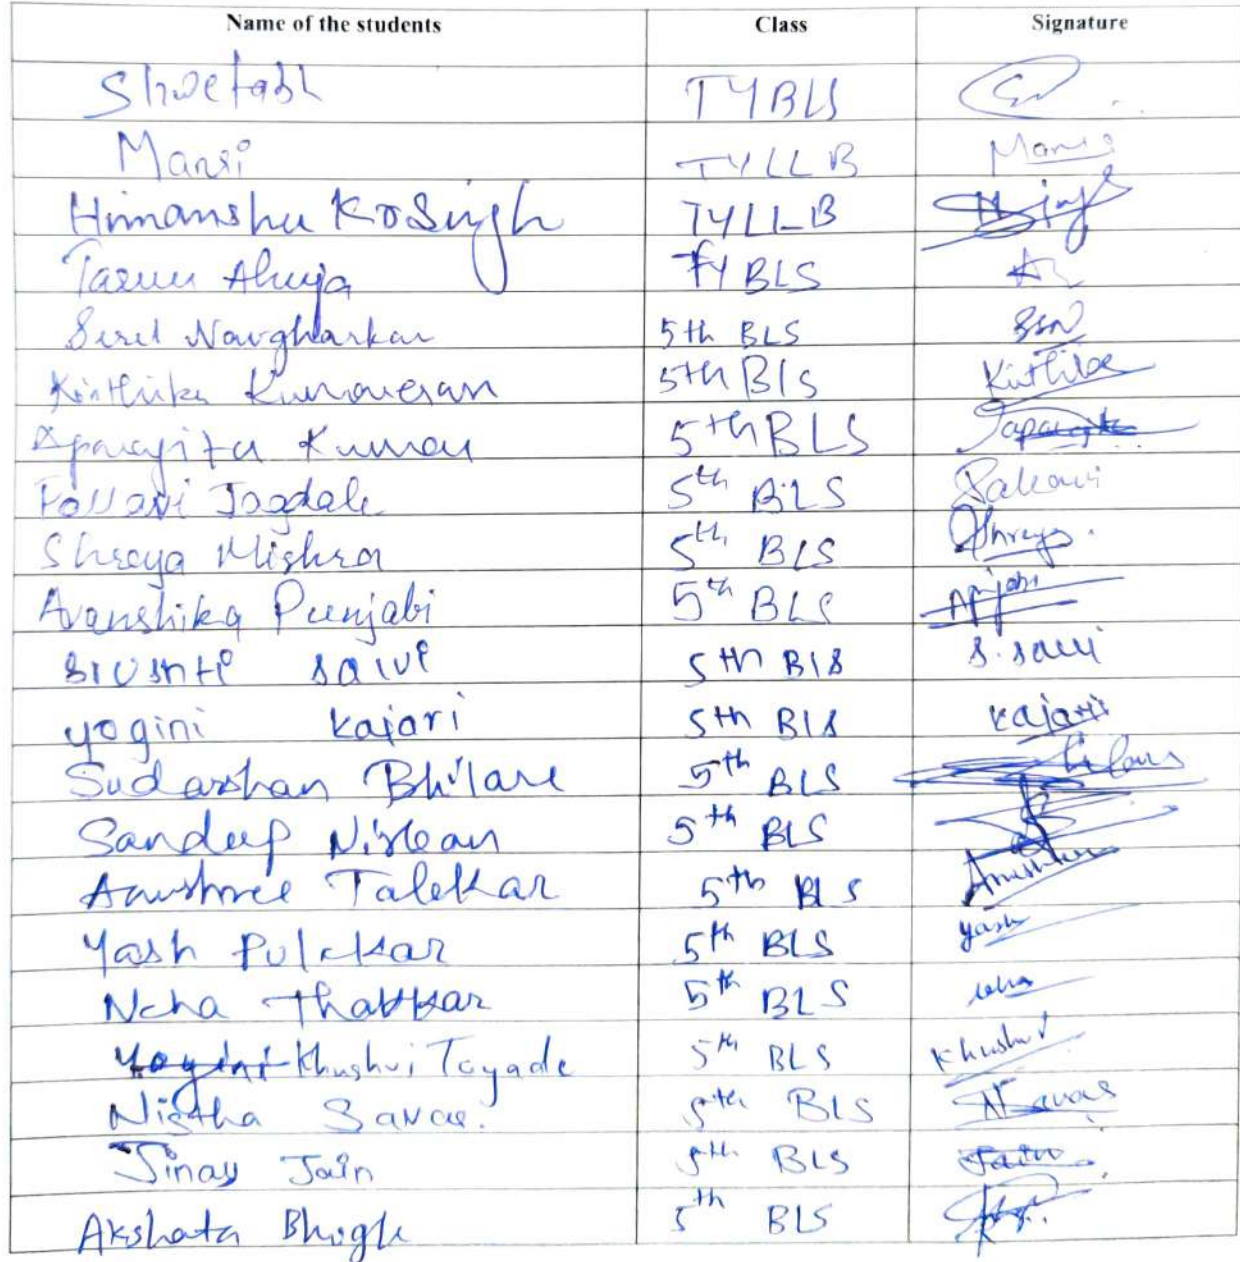 Name of the students Class Signature
Shwetabh TYBLS
Mansi TYLLB Mansi
Himanshu Kr Singh TYLLB Singh
Tarun Ahuja TYBLS
Navgharkar 5th BLS SSN
Kirthika Kumaresan 5th BLS Kirthika
Aparajita Kumar 5th BLS Aparajita
Pallavi Jagdale 5th BLS Pallavi
Shreya Mishra 5th BLS Shreya
Avanshika Punjabi 5th BLS Apnjabi
Srushti salvi 5th BLS s.salvi
yogini kajari 5th BLS kajari
Sudarshan Bhilare 5th BLS
Sandeep 5th BLS
Anushree Talekar 5th BLS Anushree
Yash Pulekar 5th BLS yash
Neha Thakkar 5th BLS neha
Yogini Khushvi Tayade 5th BLS Khushvi
Nistha Savas. 5th BLS N Savas
Jinay Jain 5th BLS Jain
Akshata Bhogle 5th BLS